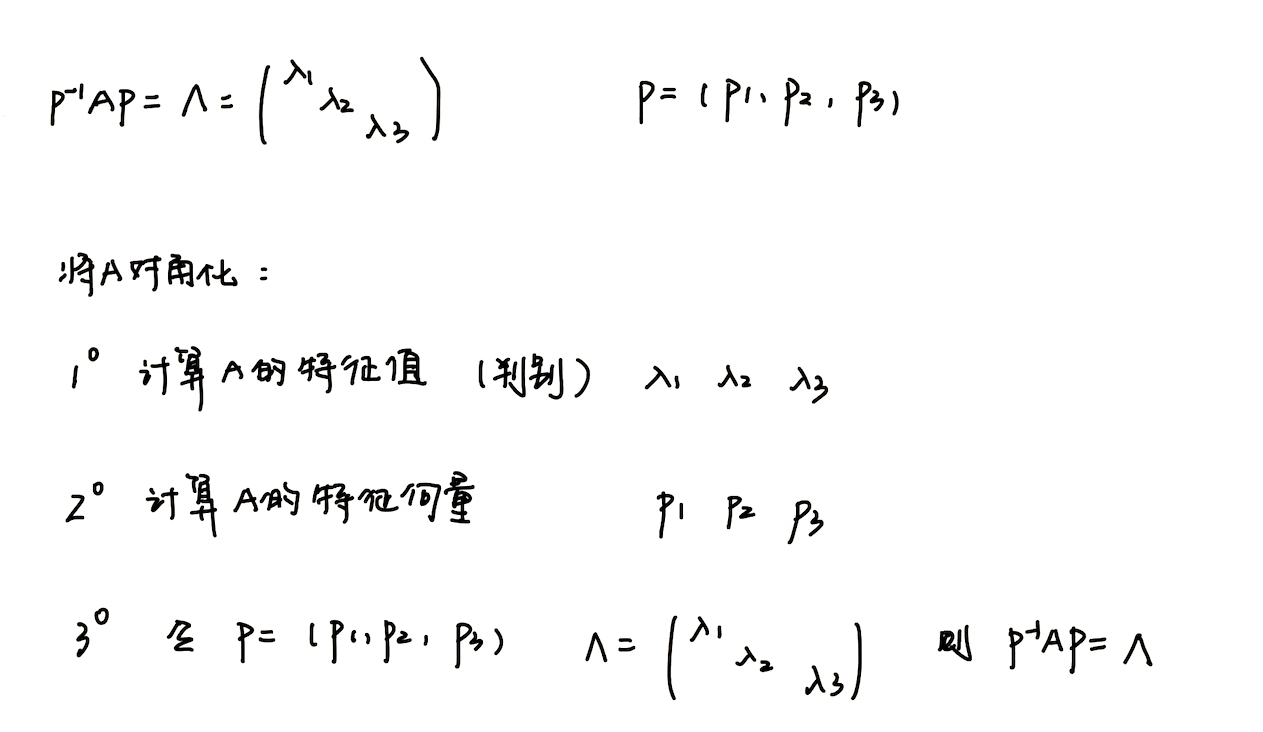 P⁻¹AP = Λ = (λ₁ λ₂ λ₃) P = (P₁、P₂, P₃)
将A对角化：
1° 计算A的特征值 (判别) λ₁ λ₂ λ₃
2° 计算A的特征向量 P₁ P₂ P₃
3° 令 P = (P₁, P₂, P₃) Λ = (λ₁ λ₂ λ₃) 则 P⁻¹AP = Λ